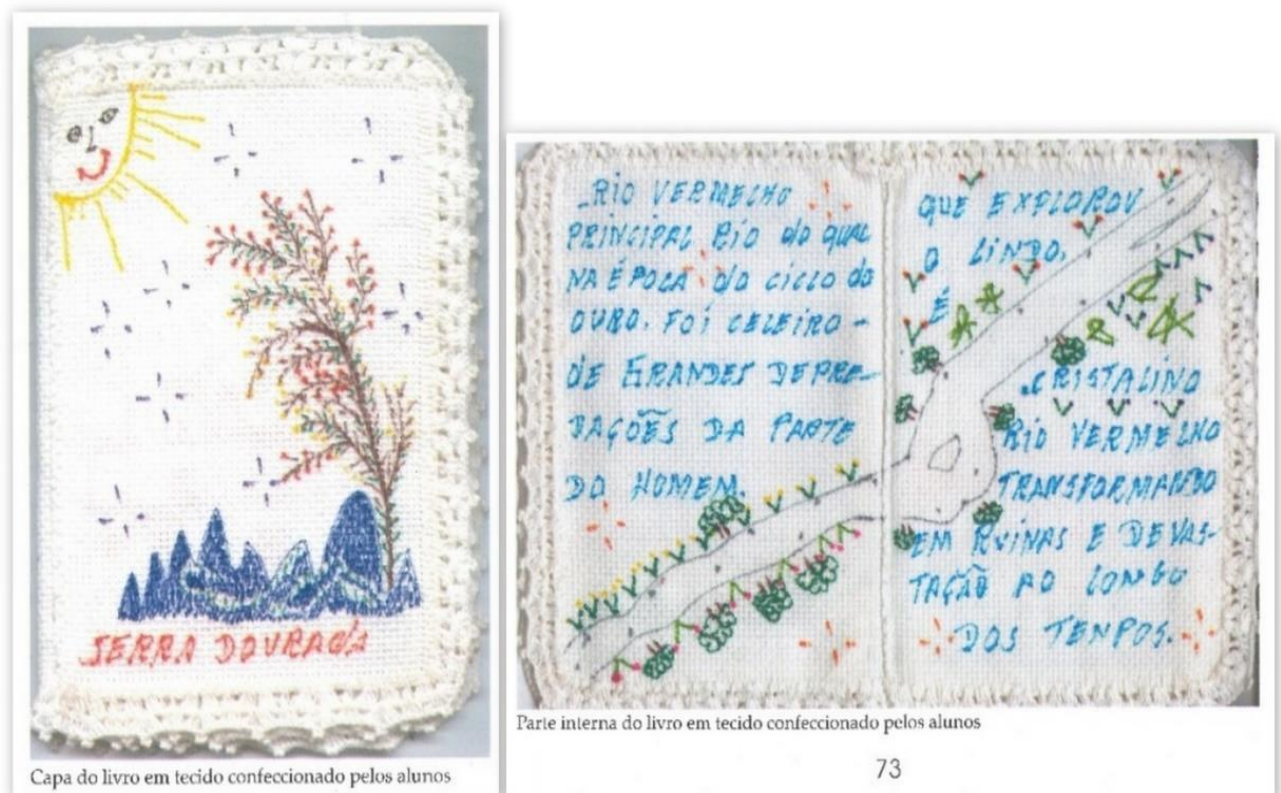 SERRA DOURADA
Capa do livro em tecido confeccionado pelos alunos
_RIO VERMELHO
PRINCIPAL RIO do QUAL
NA ÉPOCA do CICLO do
OURO. FOI CELEIRO -
DE GRANDES DEPRE-
DAÇÕES DA PARTE
DO HOMEM.
QUE EXPLOROU
O LINDO,
É
CRISTALINO
RIO VERMELHO
TRANSFORMANDO
EM RUINAS E DEVAS-
TAÇÃO AO LONGO
DOS TENPOS.
Parte interna do livro em tecido confeccionado pelos alunos
73